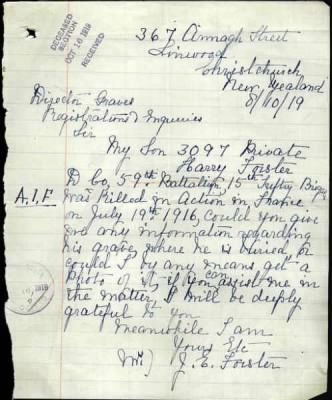 DECEASED
SECTION
OCT 16 1919
RECEIVED
367 Armagh Street
Linwood
Christchurch
New Zealand
8/10/19
Director Graves
Registrations & Enquiries
Sir
My Son 3097 Private
Harry Forster
D Co, 59th Battalion, 15 Inftry Brig
A.I.F. was Killed in Action in France
on July 19th 1916, could you give
me any information regarding
his grave, where he is buried or
could I by any means get a
Photo of it, if you can assist me in
the matter, I will be deeply
grateful to you
Meanwhile I am
Yours Etc
J. E. Forster
1919